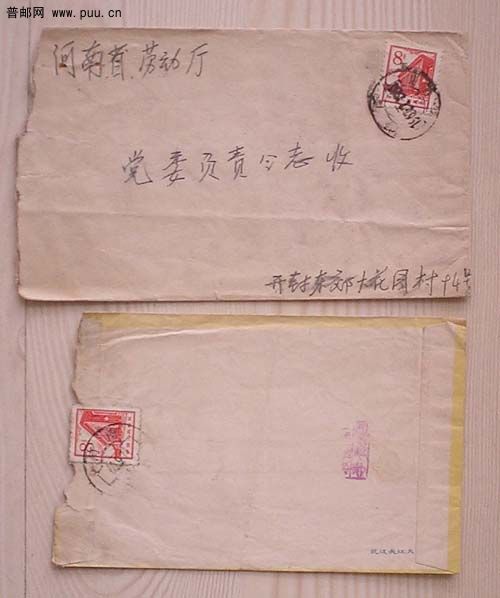 普邮网
www.puu.cn
河南省劳动厅
8
党委负责同志收
开封东郊大花园村94号
8
武汉长江大